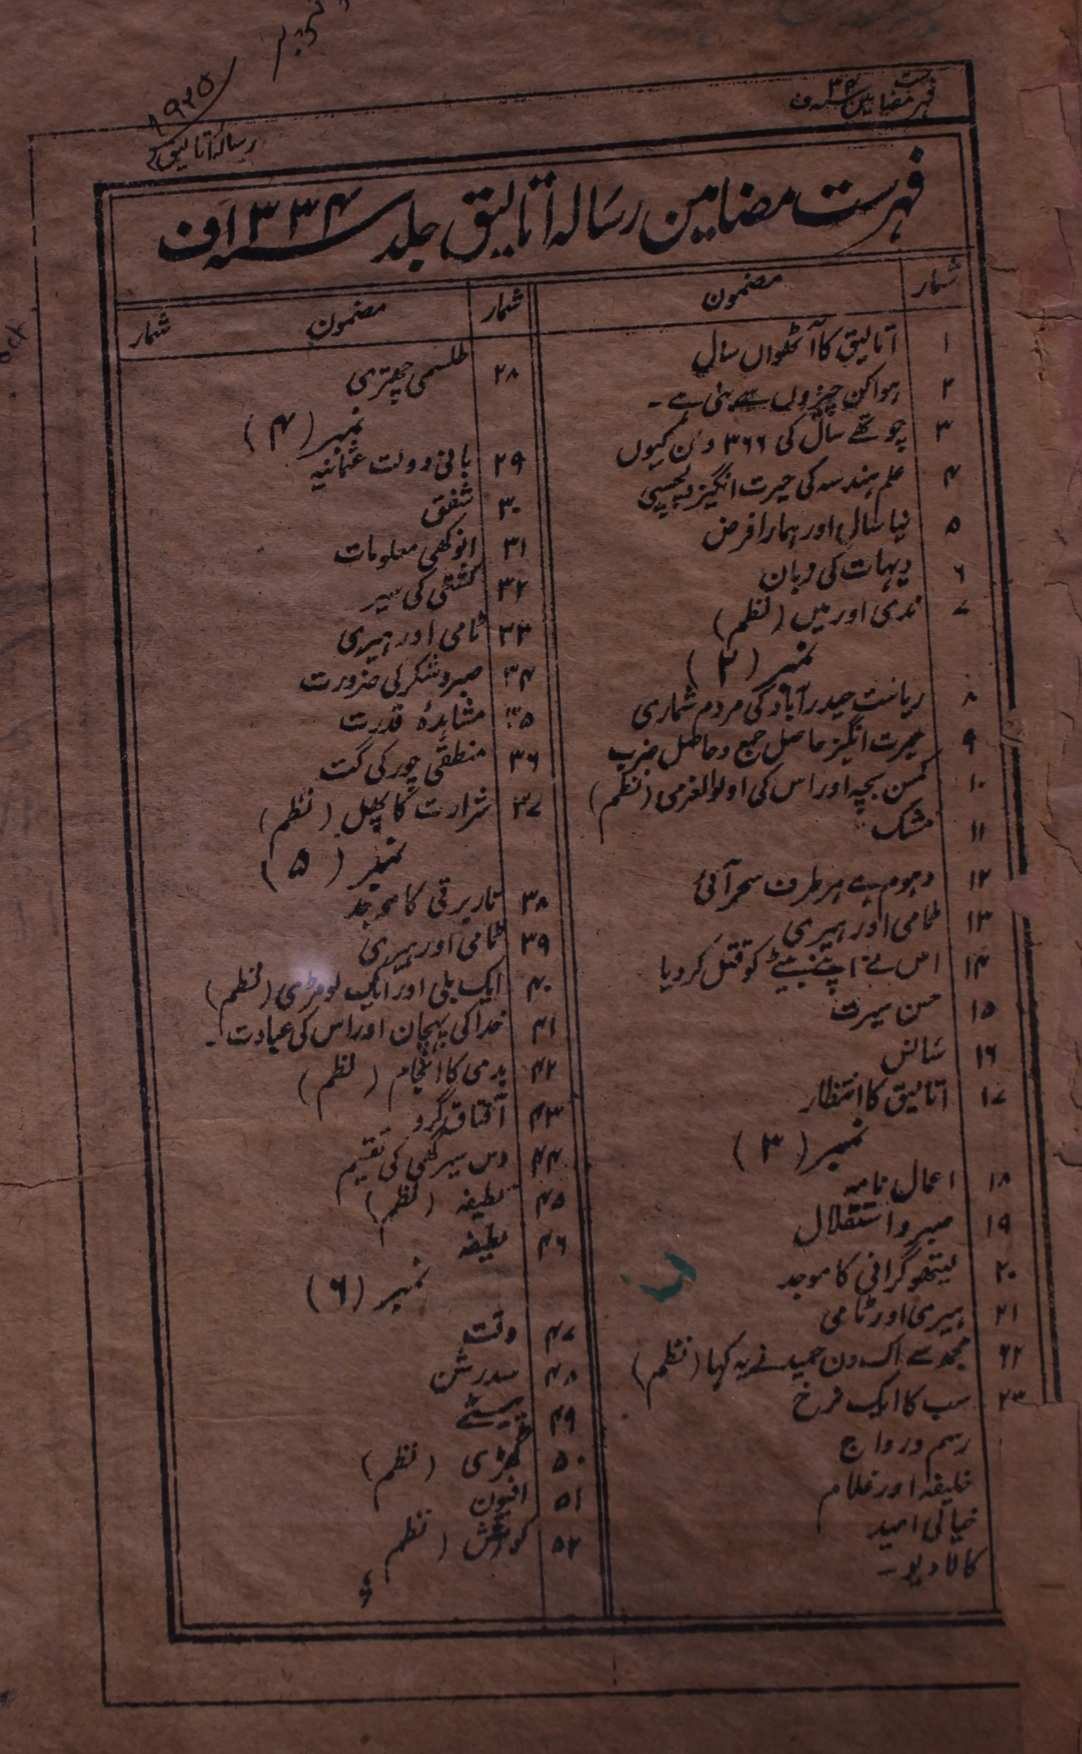 ۱۹۲۵
رسالہ اتالیق
فہرست مضامین ۳۴ ف
فہرست مضامین رسالہ اتالیق جلد ۱۳۳۴ ف
شمار مضمون
۱ اتالیق کا آٹھواں سال
۲ ہوا کن چیزوں سے بنی ہے -
۳ چوتھے سال کی ۳۶۶ دن کیوں
۴ علم ہندسہ کی حیرت انگیز دلچسپی
۵ نیا سال اور ہمارا فرض
۶ دیہات کی زبان
۷ ندی اور میں (نظم)
نمبر (۲)
۸ ریاست حیدرآباد کی مردم شماری
۹ حیرت انگیز حاصل جمع و حاصل ضرب
۱۰ کمسن بچہ اور اس کی اولوالعزمی (نظم)
۱۱ مشک
۱۲ دہوم ہے ہر طرف سحر آئی
۱۳ ٹامی اور ہیری
۱۴ اس نے اپنے بیٹے کو قتل کر دیا
۱۵ حسن سیرت
۱۶ سانس
۱۷ اتالیق کا انتظار
نمبر (۳)
۱۸ اعمال نامہ
۱۹ صبر و استقلال
۲۰ لیتھوگرافی کا موجد
۲۱ ہیری اور ٹامی
۲۲ مجھ سے اک دن حمید نے یہ کہا (نظم)
۲۳ سب کا ایک نرخ
رسم و رواج
خلیفہ اور غلام
خیالی امید
کالا دیو -
شمار مضمون شمار
۲۸ طلسمی چھتری
نمبر (۴)
۲۹ بانی دولت عثمانیہ
۳۰ شفق
۳۱ انوکھی معلومات
۳۲ کشتی کی سیر
۳۳ ٹامی اور ہیری
۳۴ صبر و شکر کی ضرورت
۳۵ مشاہدۂ قدرت
۳۶ منطقی چور کی گت
۳۷ شرارت کا پھل (نظم)
نمبر (۵)
۳۸ تار برقی کا موجد
۳۹ ٹامی اور ہیری
۴۰ ایک بلی اور ایک لومڑی (نظم)
۴۱ خدا کی پہچان اور اس کی عبادت -
۴۲ بدی کا انجام (نظم)
۴۳ آفتاب گرو
۴۴ دس سیر گھی کی تقسیم
۴۵ لطیفہ (نظم)
۴۶ لطیفہ
نمبر (۶)
۴۷ وقت
۴۸ سدرشن
۴۹
۵۰ گھڑی (نظم)
۵۱ افیون
۵۲ کوشش (نظم